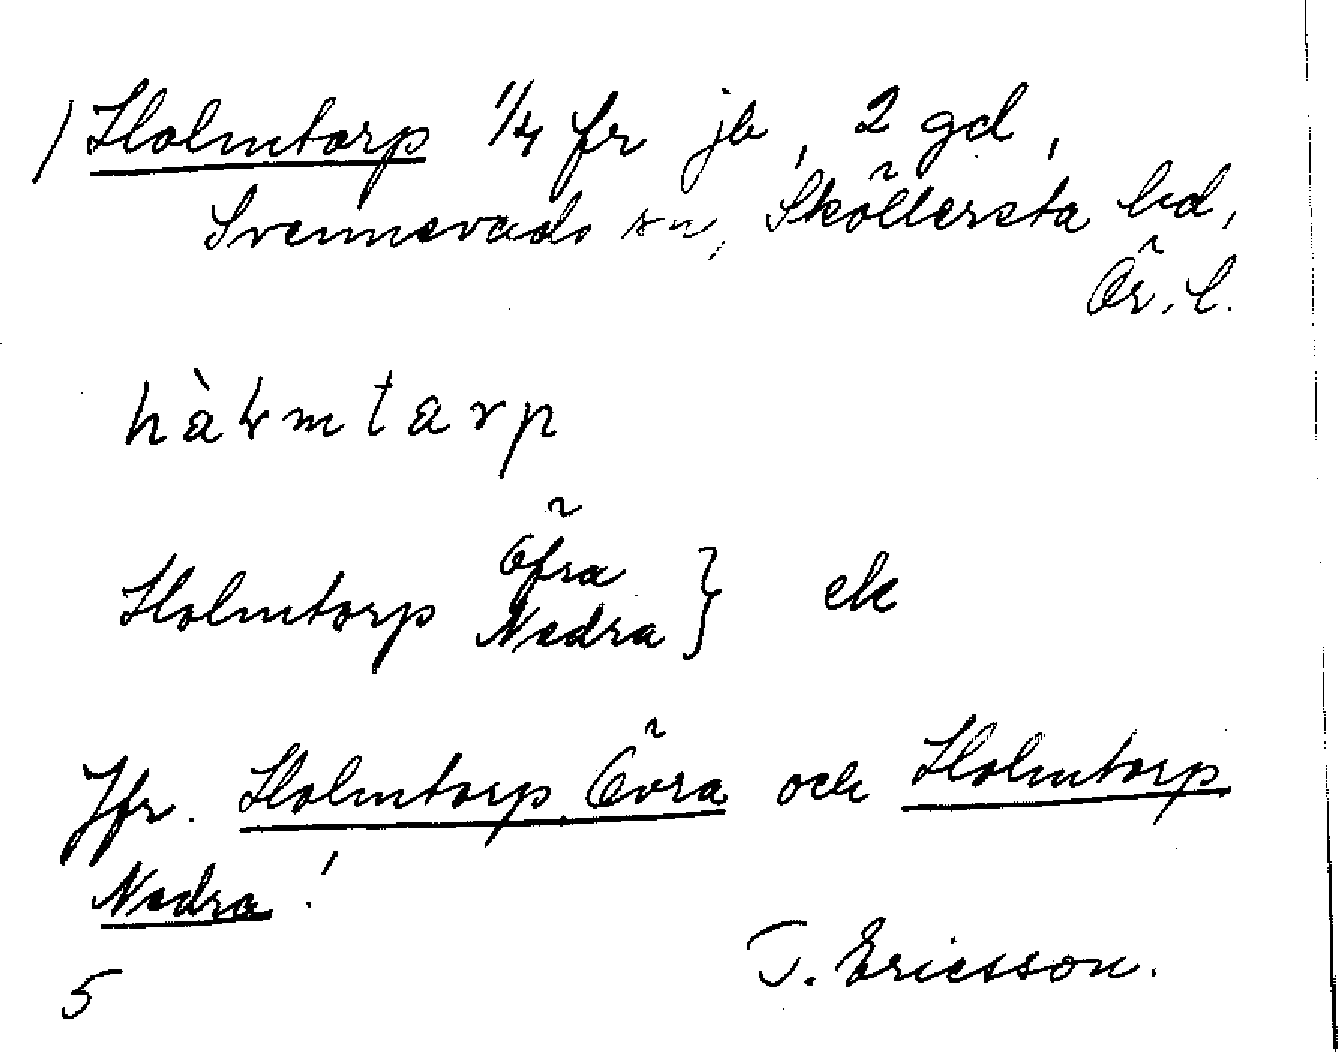 ) Holmtorp 1/4 fr jb, 2 gd,
Svennevads sn, Sköllersta hd,
Ör. l.
hàɫmtarp
Holmtorp Öfra
Nedra } ek
Jfr. Holmtorp, Övra och Holmtorp,
Nedra!
T. Ericsson.
5